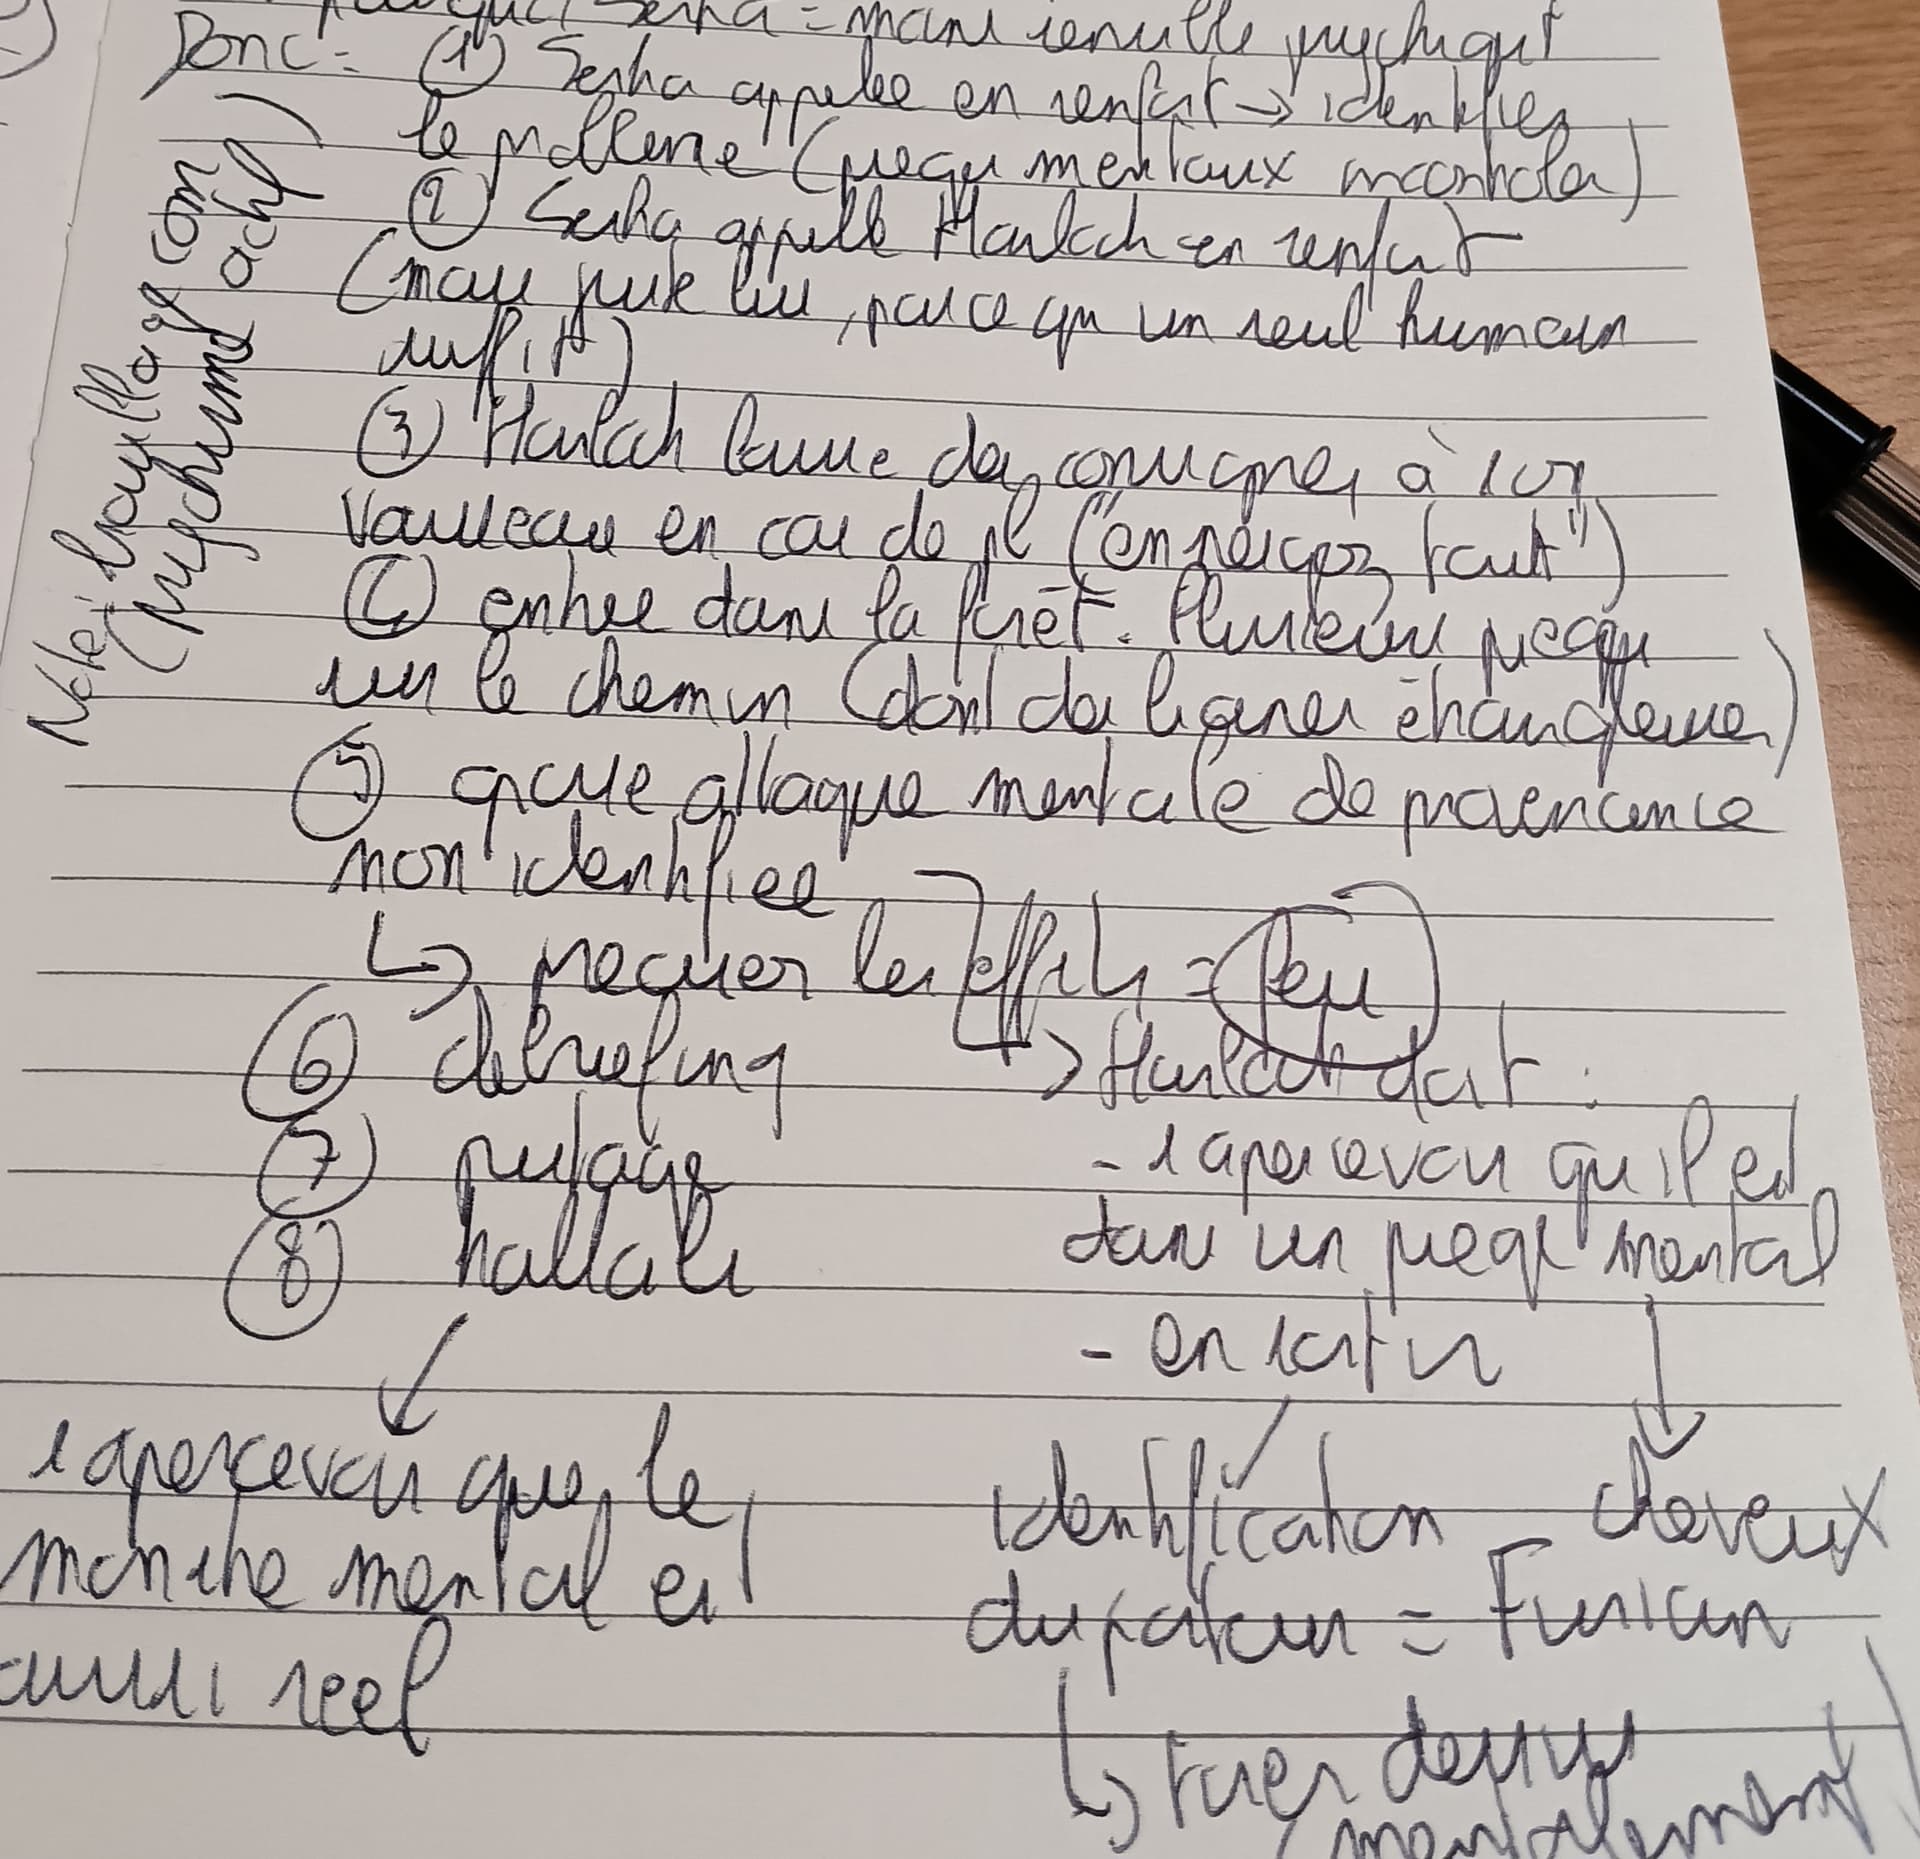 = moins sensible psychiqut
Donc = ① Serha appelée en renfort → identifier
le problème (pièges mentaux incontrolés)
② Serha appelle Harlach en renfort
(mais juste lui, parce qu un seul humain
suffit)
③ Harlach laisse des consignes à son
vaisseau en cas de pb ("en perçoz tout")
④ entrée dans la forêt. Plusieurs pièges
sur le chemin (dont des lianes étrangleuses)
⑤ grosse attaque mentale de provenance
non identifiée
↳ préciser les effets = Peur
⑥ debriefing
⑦ pistage
⑧ hallali
↓
s apercevoir que le
monstre mental est
aussi réel
→ Harlach doit :
- s apercevoir qu il est
dans un piège mental
- en sortir
identification - cheveux
du patron = Fusion
↳ tirer dessus
mentalement
Note : brouillage com
(psychisme actif)